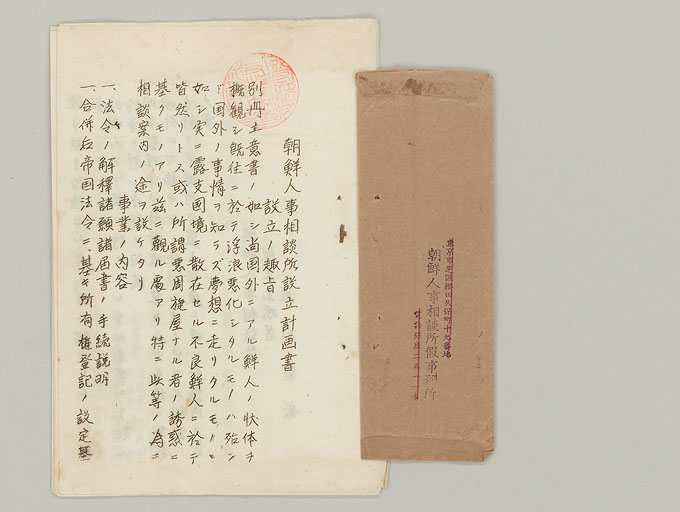 朝鮮人事相談所設立計画書
設立ノ趣旨
別冊主意書ノ如シ尚国外ニアル鮮人ノ状体ヲ
概観シ既往ニ於テ浮浪悪化シタルモノハ殆ン
ド国外ノ事情ヲ知ラズ夢想ニ走リタルモノヽ
如シ実ニ露支国境ニ散在セル不良鮮人ニ於テ
皆然リトス或ハ所謂悪周旋屋ナル者ノ誘惑ニ
基クモノアリ茲ニ観ル処アリ特ニ此等ノ為ニ
相談案内ノ途ヲ設ケタリ
事業ノ内容
一、法令ノ解釋諸願諸届書ノ手続説明
一、合併后帝国法令ニ基キ所有権登記ノ設定
東京市芝區
十九番地
朝鮮人事相談所假事務所